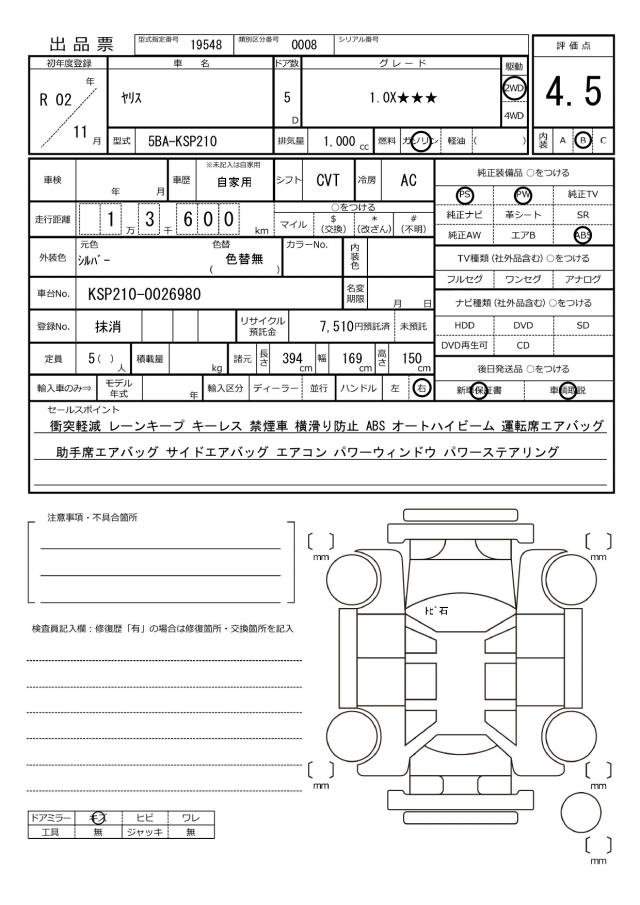 出品票 型式指定番号 19548 類別区分番号 0008 シリアル番号
評価点
4.5
内装 A B C
初年度登録 車名 ドア数 グレード 駆動
R 02 年 11 月 ﾔﾘｽ 5 D 1.0X★★★ 2WD 4WD
型式 5BA-KSP210 排気量 1.000 cc 燃料 ガソリン 軽油 ( )
車検 年 月 車歴 ※未記入は自家用 自家用 シフト CVT 冷房 AC
走行距離 1 万 3 千 6 0 0 km ○をつける
マイル $ (交換) * (改ざん) # (不明)
外装色 元色 ｼﾙﾊﾞｰ 色替 ( 色替無 ) カラーNo. 内装色
車台No. KSP210-0026980 名変期限 月 日
登録No. 抹消 リサイクル預託金 7,510円預託済 未預託
定員 5( ) 人 積載量 kg 諸元 長さ 394 cm 幅 169 cm 高さ 150 cm
輸入車のみ⇒ モデル年式 年 輸入区分 ディーラー 並行 ハンドル 左 右
純正装備品 ○をつける
PS PW 純正TV
純正ナビ 革シート SR
純正AW エアB ABS
TV種類 (社外品含む) ○をつける
フルセグ ワンセグ アナログ
ナビ種類 (社外品含む) ○をつける
HDD DVD SD
DVD再生可 CD
後日発送品 ○をつける
新車保証書 車輌取説
セールスポイント
衝突軽減 レーンキープ キーレス 禁煙車 横滑り防止 ABS オートハイビーム 運転席エアバッグ
助手席エアバッグ サイドエアバッグ エアコン パワーウィンドウ パワーステアリング
注意事項・不具合箇所
検査員記入欄：修復歴「有」の場合は修復箇所・交換箇所を記入
ドアミラー キズ ヒビ ワレ
工具 無 ジャッキ 無
〔 〕 mm
〔 〕 mm
ﾄﾋﾞ石
〔 〕 mm
〔 〕 mm
〔 〕 mm